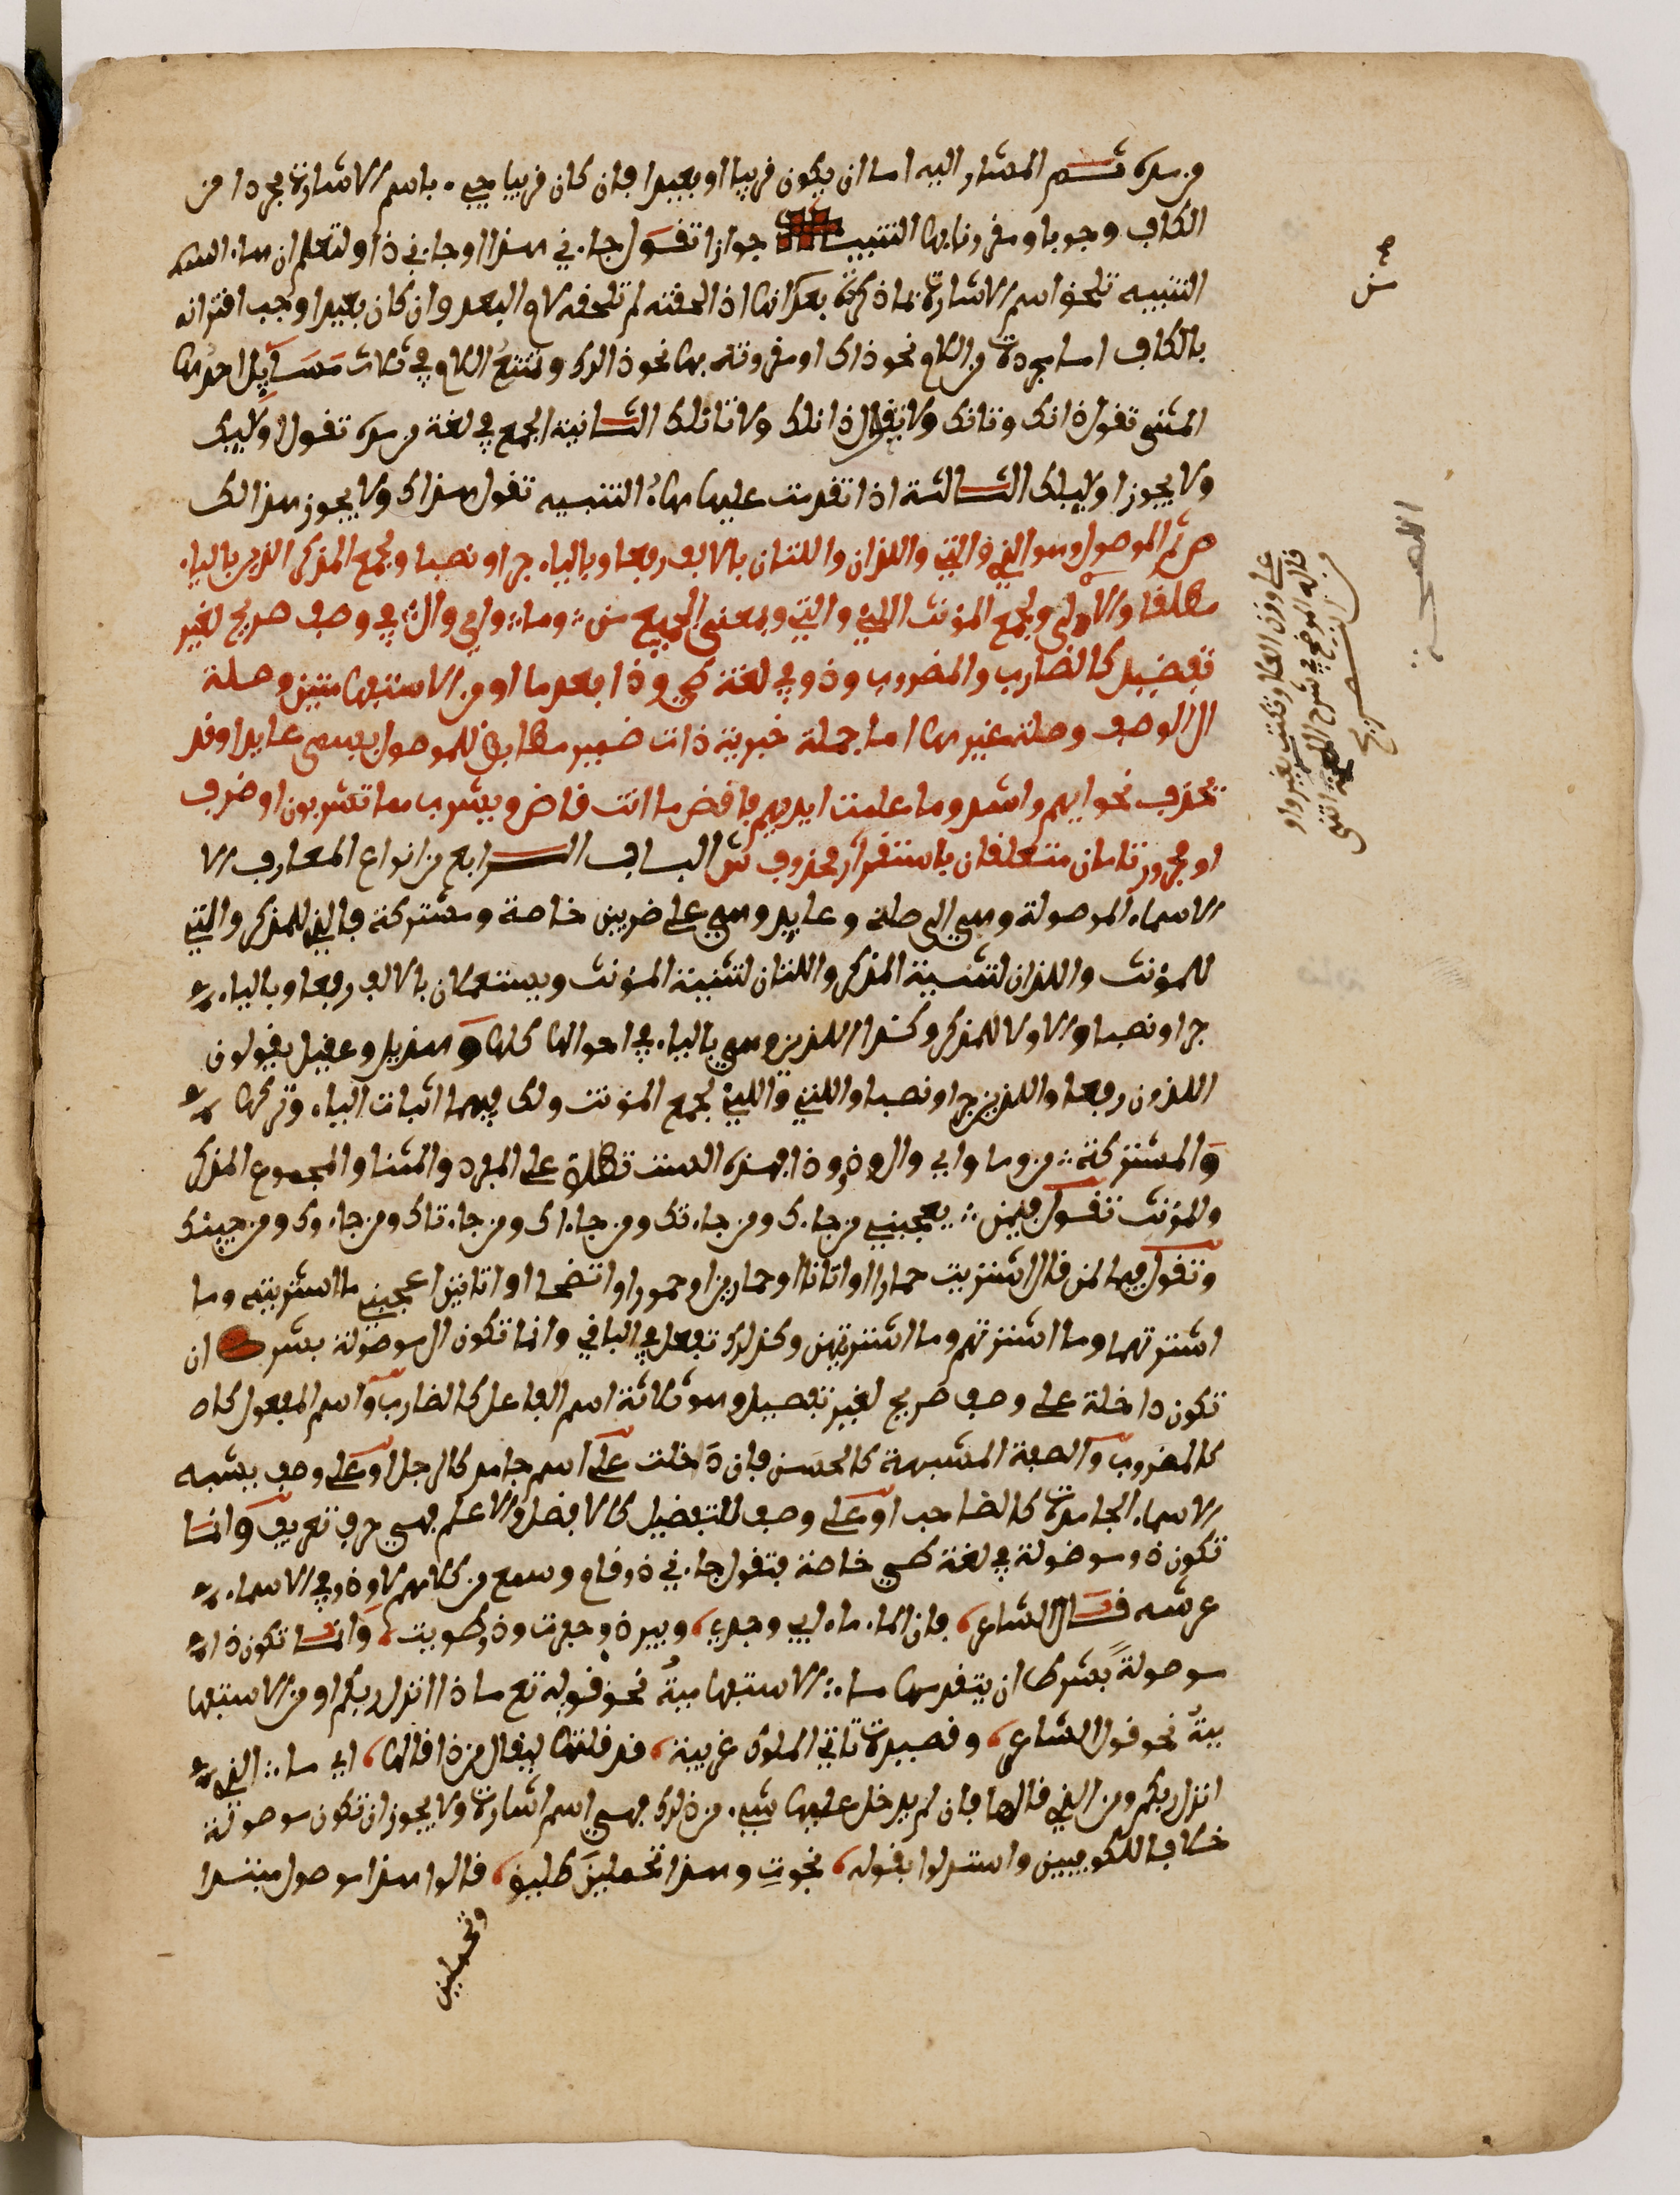 من مده ثـــم المشار اليه اما ان يكون قريبا او بعيدا فان كان قريبا جيء باسم الاشارة مجردا من
الكاف وجوبا ومقرونا بها التنبيه جوازا تقول جاءني هذا او جاءني ذا ولتعلم ان هاء
التنبيه تلحق اسم الاشارة بما ذكرته بعد انها اذا لحقته لم تلحقه لام البعد وان كان بعيدا وجب اقترانه
بالكاف اما مجردة من اللام نحو ذاك او مقرونة بها نحو ذلك وتمتنع اللام في ثلاث مسايل احداها
المثنى تقول ذانك وتانك ولا يقال ذانلك ولا تانلك الثـانية الجمع في لغة من مده تقول اوليك
ولا يجوز اوليلك الثـالثة اذا تقدمت عليها هاء التنبيه تقول هذاك ولا يجوز هذالك
ص ثم الموصول وهو الذي والتي واللذان واللتان بالالف رفعا وبالياء جرا ونصبا ولجمع المذكر الذين بالياء
مطلقا والالى ولجمع المؤنث اللائي واللاتي وبمعنى الجميع من وما واي وال في وصف صريح لغير
تفضيل كالضارب والمضروب وذو في لغة طي وذا بعد ما او من الاستفهاميتين وصلة
ال الوصف وصلة غيرها اما جملة خبرية ذات ضمير مطابق للموصول يسمى عايدا وقد
يحذف نحو ايهم اشد وما عملت ايديهم فاقض ما انت قاض ويشرب مما تشربون او ظرف
او مجرور تامان متعلقان باستقر محذوف ش الباب الــرابع من انواع المعارف الا
الاسماء الموصولة وهي الى صلة وعايد وهي على ضربين خاصة ومشتركة فالذي للمذكر والتي
للمؤنث واللذان لتثنية المذكر واللتان لتثنية المؤنث ويستعملان بالالف رفعا وبالياء
جرا ونصبا والاولا للمذكر وكذا الذين وهي بالياء في احوالها كلها وهذيل وعقيل يقولون
اللذون رفعا واللذين جرا ونصبا واللاتي واللائي لجمع المؤنث ولك فيهما اثبات الياء وتركها
والمشتركة من وما واي وال وذو وذا فهذه الست تطلق على المفرد والمثنا والمجموع المذكر
والمؤنث تقول في من يعجبني من جاءك ومن جاءتك ومن جاءاك ومن جاءتاك ومن جاءوك ومن جيئنك
وتقول في ما لمن قال اشتريت حمارا او اتانا او حمارين او حمورا او اتنا او اتانين اعجبني ما اشتريته وما
اشتريتهما وما اشتريتهم وما اشتريتهن وكذلك تفعل في الباقي وانما تكون ال موصولة بشرط ان
تكون داخلة على وصف صريح لغير تفضيل وهو ثلاثة اسم الفاعل كالضارب واسم المفعول كا
كالمضروب والصفة المشبهة كالحسن فان دخلت على اسم جامد كالرجل او على وصف يشبه
الاسماء الجامدة كالصاحب او على وصف للتفضيل كالافضل والاعلم فهي حرف تعريف وانما
تكون ذو موصولة في لغة طي خاصة فتقول جاءني ذو قام وسمع من كلامهم لا وذو في الاسماء
عرشه قـــال الشاعر، فان الماء ماء ابي وجدي، وبير ذو حفرت وذو طويت، وانما تكون ذا
موصولة بشرط ان يتقدمها ما الاستفهامية نحو قوله تع ماذا انزل ربكم او من الاستفها
مية نحو قول الشاعر، وقصيدة تاتي الملوك غريبة، قد قلتها ليقال من ذا قالها، اي ما الذي
انزل ربكم ومن الذي قالها فان لم يدخل عليها شيء من ذلك فهي اسم اشارة ولا يجوز ان تكون موصولة
خلافا للكوفيين واستدلوا بقوله، نجوت وهذا تحملين طليق، قالوا هذا موصول مبتدا
وتحملين
على وزن العلا وتكتب بغير واو
قاله الموضح في شرح اللمحة انتهى
من التصريح
اللمحة